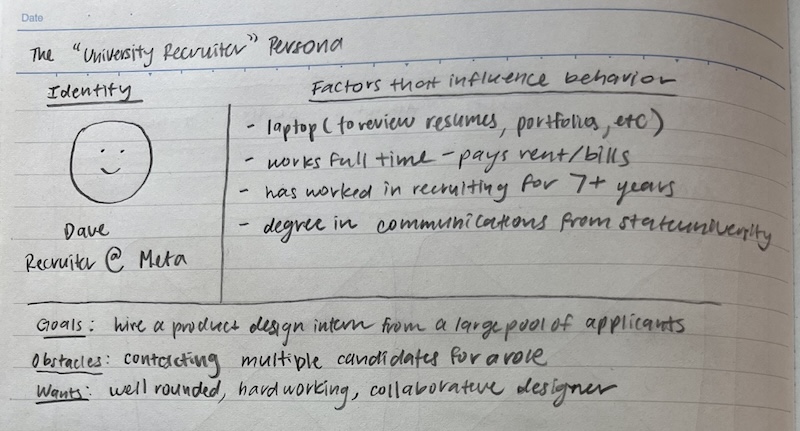 Date
The "University Recruiter" Persona
Identity
Factors that influence behavior
- laptop (to review resumes, portfolios, etc)
- works full time - pays rent/bills
- has worked in recruiting for 7+ years
- degree in communications from state university
Dave
Recruiter @ Meta
Goals: hire a product design intern from a large pool of applicants
Obstacles: contacting multiple candidates for a role
Wants: well rounded, hard working, collaborative designer